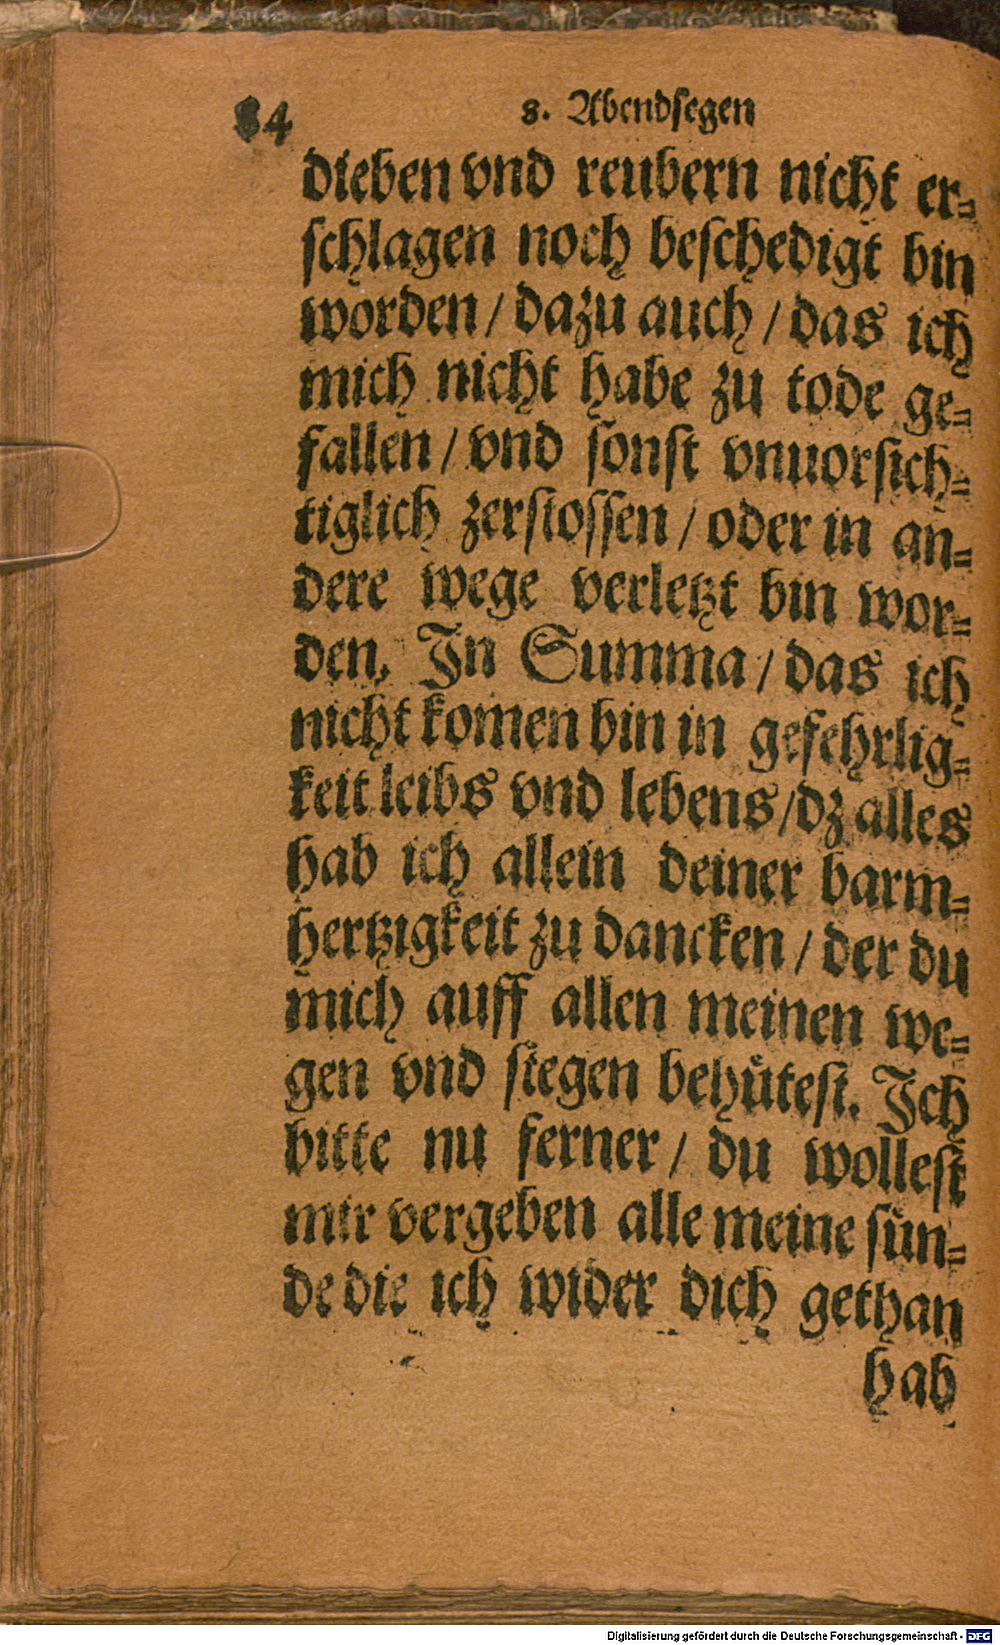 84 8. Abendsegen
dieben vnd reubern nicht er⸗
schlagen noch beschedigt bin
worden / dazu auch / das ich
mich nicht habe zu tode ge⸗
fallen / vnd sonst vnuorsich⸗
tiglich zerstossen / oder in an⸗
dere wege verletzt bin wor⸗
den. In Summa / das ich
nicht komen bin in gefehrlig⸗
keit leibs vnd lebens / dz alles
hab ich allein deiner barm⸗
hertzigkeit zu dancken / der du
mich auff allen meinen we⸗
gen vnd stegen behütest. Ich
bitte nu ferner / du wollest
mir vergeben alle meine sün⸗
de die ich wider dich gethan
hab
Digitalisierung gefördert durch die Deutsche Forschungsgemeinschaft - DFG